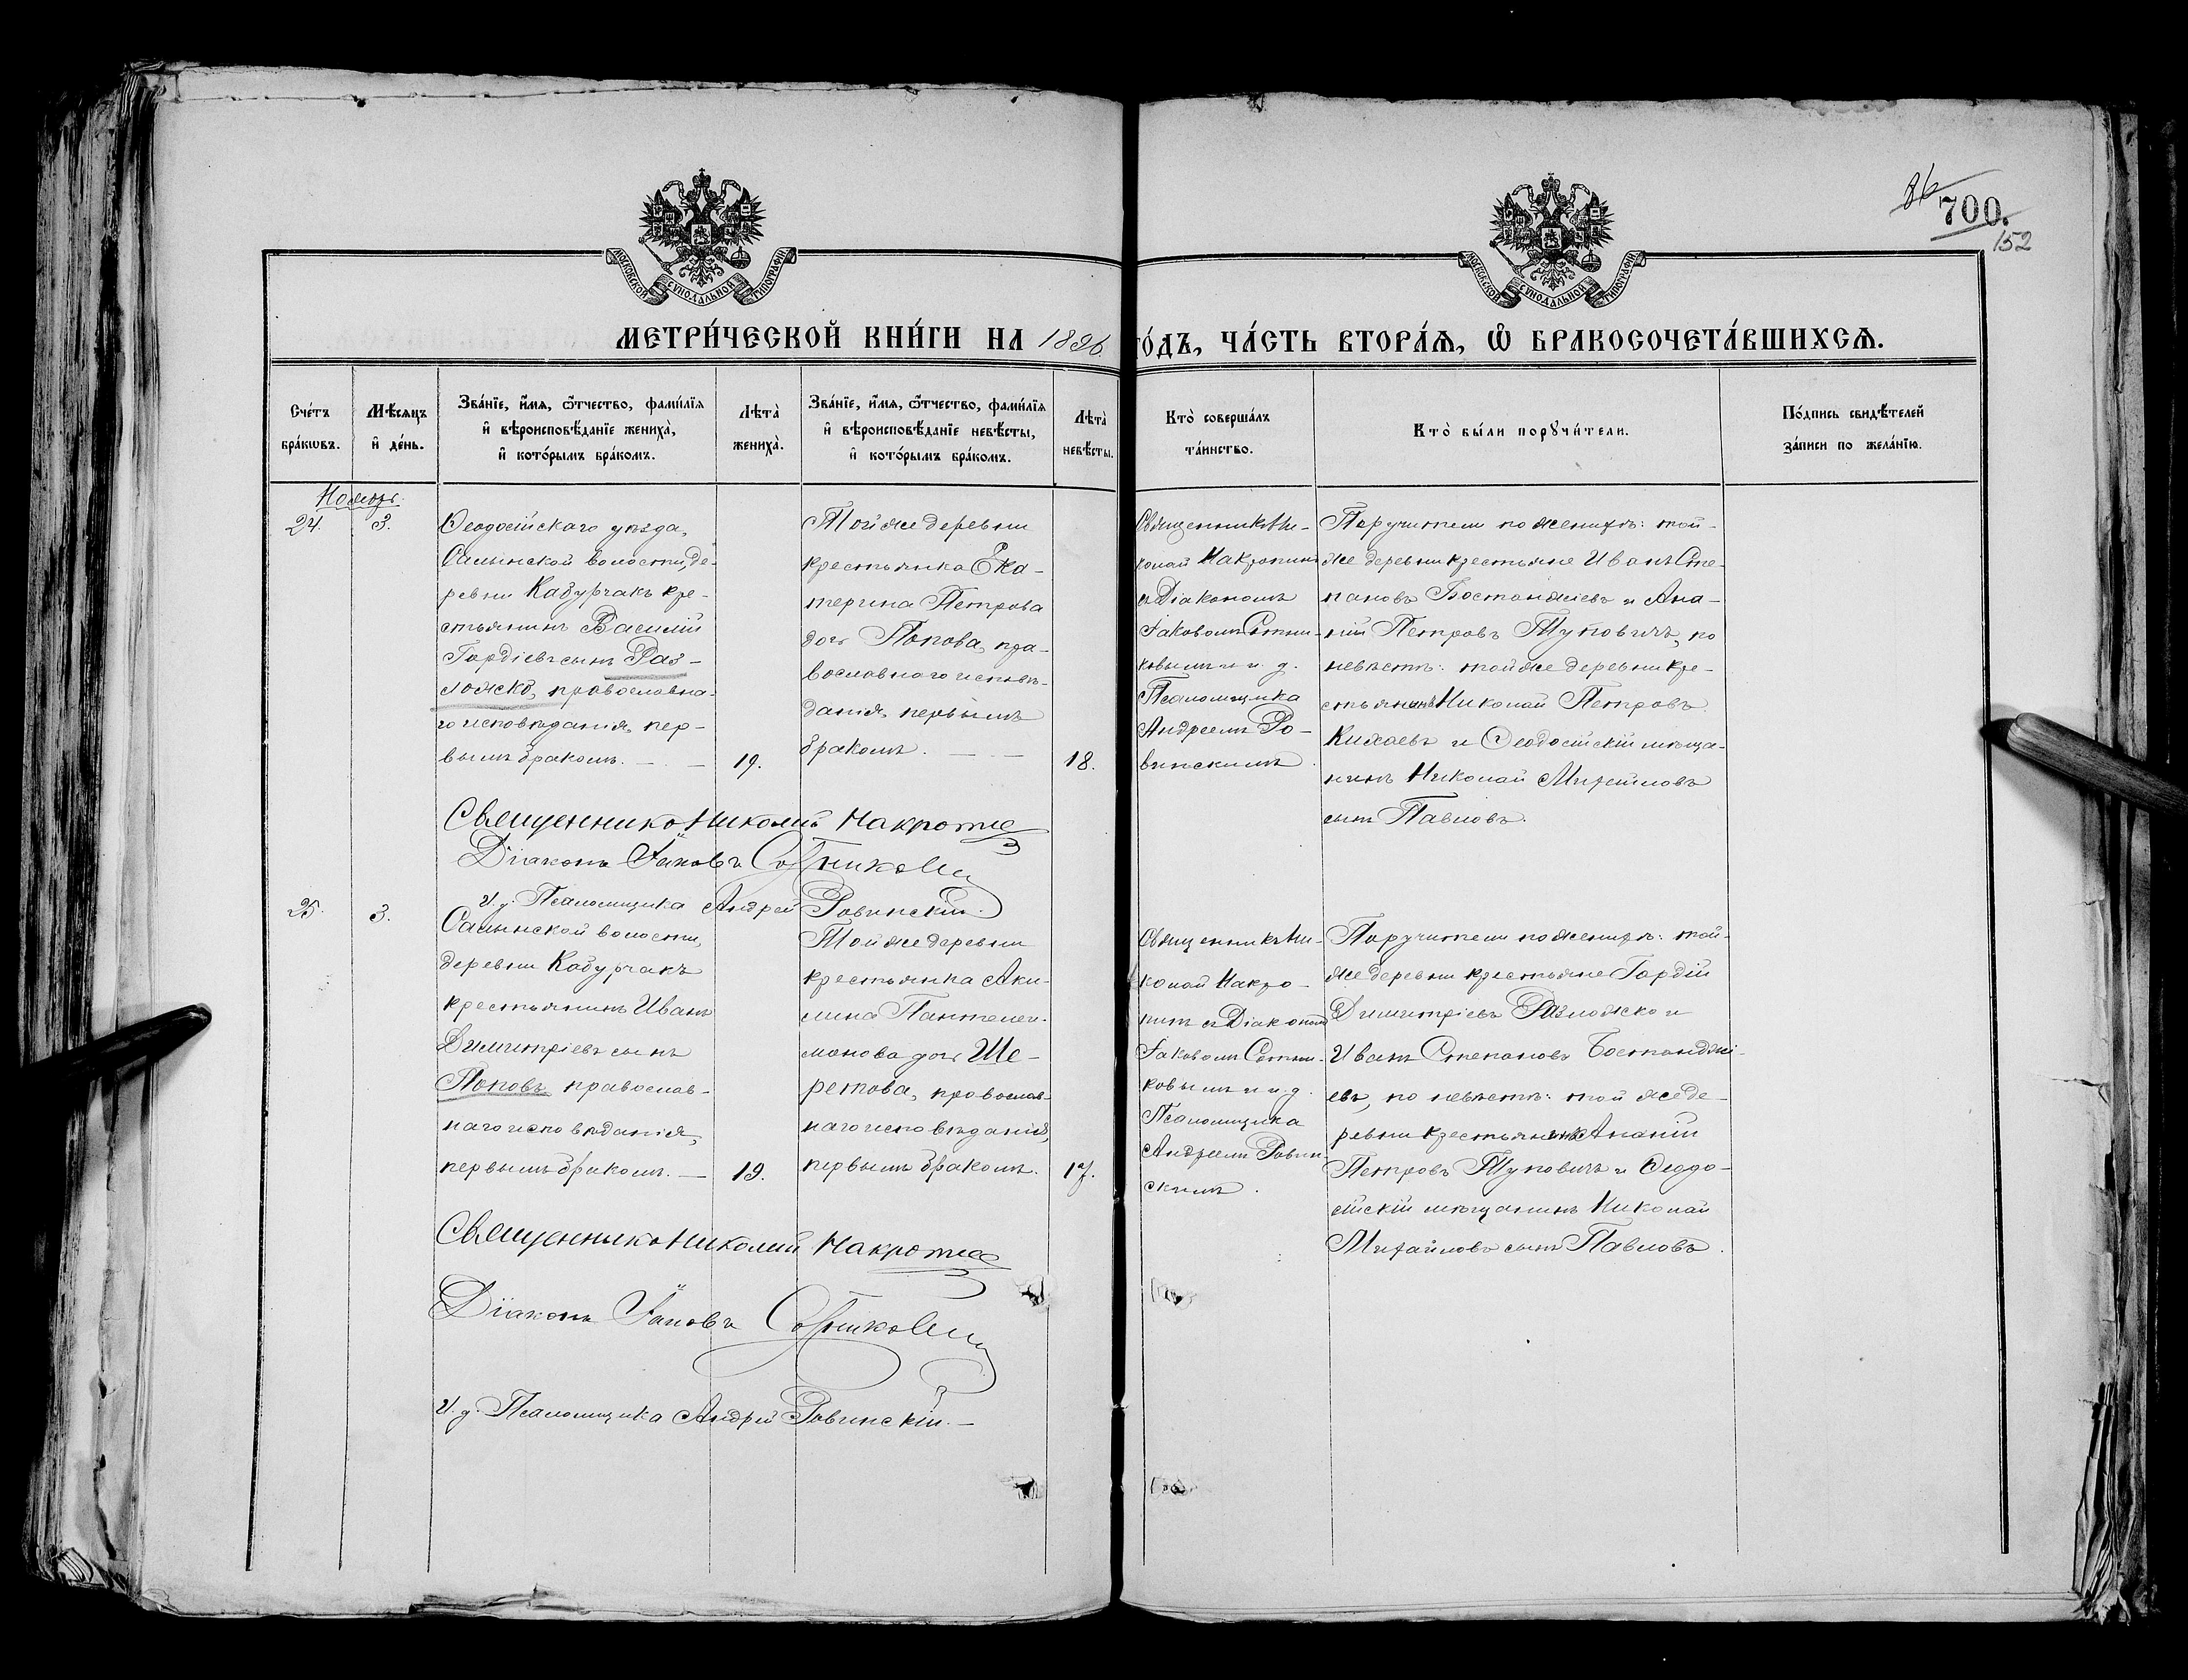 86
700.
152
МОСКОВСКОЙ СѴНОДАЛЬНОЙ ТИПОГРАФІИ
МОСКОВСКОЙ СѴНОДАЛЬНОЙ ТИПОГРАФІИ
МЕТРИ́ЧЕСКОЙ КНИ́ГИ НА 1896 ГО́ДЪ, ЧА́СТЬ ВТОРА́Ѧ, Ѽ БРАКОСОЧЕТА́ВШИХСѦ.
Сче́тъ
бра́кѡвъ.
Мѣ́сяцъ
и҆ де́нь.
Зва́нїе, и҆́мя, ѻ҆́тчество, фами́лїя
и҆ вѣроисповѣ́данїе жениха̀,
и҆ кото́рымъ бра́комъ.
Лѣта̀
жениха̀.
Зва́нїе, и҆́мя, ѻ҆́тчество, фами́лїя
и҆ вѣроисповѣ́данїе невѣ́сты,
и҆ кото́рымъ бра́комъ.
Лѣта̀
невѣ́сты.
Кто̀ соверша́лъ
та́инство.
Кто̀ бы́ли порꙋчи́тели.
По́дпись свидѣ́телей
за́писи по жела́нїю.
Ноябрь.
24.
3.
Ѳеодосійскаго уѣзда,
Салынской волости, де-
ревни Кабурчакъ кре-
стьянинъ Василій
Гордіевъ сынъ Раз-
ложко, православна-
го исповѣданія, пер-
вымъ бракомъ. — —
19.
Той же деревни
крестьянка Ека-
терина Петрова
дочь Попова, пра-
вославнаго исповѣ-
данія, первымъ
бракомъ. — —
18.
Священникъ Ни-
колай Макропинъ
съ Діакономъ
Іаковомъ Сотни-
ковымъ и и. д.
Псаломщика
Андреемъ Ро-
винскимъ.
Поручители по женихѣ: той-
же деревни крестьяне Иванъ Сте-
пановъ Бостанжіевъ и Ана-
ній Петровъ Туповичъ, по
невѣстѣ: той же деревни кре-
стьянинъ Николай Петровъ
и Ѳеодосійскій мѣща-
нинъ Николай Михайловъ
сынъ Павловъ.
Священникъ Николай
Діаконъ Іаковъ Сотниковъ
И. д. Псаломщика Андрей Ровинскій.
25.
3.
Салынской волости,
деревни Кабурчакъ
крестьянинъ Иванъ
Димитріевъ сынъ
Поповъ, православ-
наго исповѣданія,
первымъ бракомъ. —
19.
Той же деревни
крестьянка Аки-
лина Пантелеи-
монова дочь Ше-
ретова, православ-
наго исповѣданія,
первымъ бракомъ.
17.
Священникъ Ни-
колай Макро-
пинъ съ Діакономъ
Іаковомъ Сотни-
ковымъ и и. д.
Псаломщика
Андреемъ Ровин-
скимъ.
Поручители по женихѣ: той-
же деревни крестьяне Гордій
Димитріевъ Разложко и
Иванъ Степановъ Бостанджі-
евъ, по невѣстѣ: той же де-
ревни крестьянинъ Ананій
Петровъ Туповичъ и Ѳеодо-
сійскій мѣщанинъ Николай
Михайловъ сынъ Павловъ.
Священникъ Николай
Діаконъ Іаковъ Сотниковъ
И. д. Псаломщика Андрей Ровинскій. —